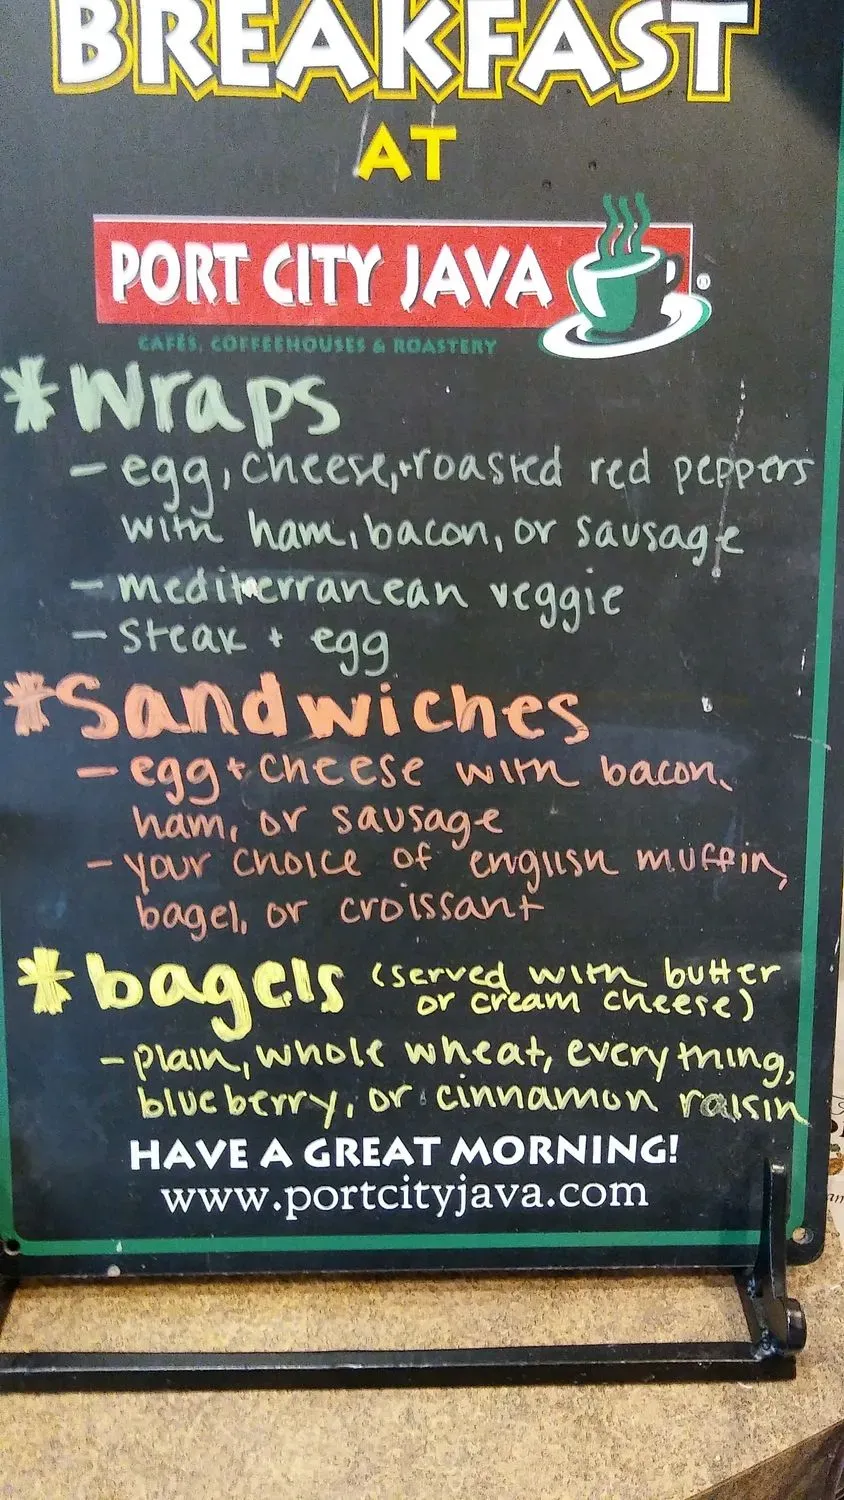 BREAKFAST
AT
PORT CITY JAVA ®
CAFÉS, COFFEEHOUSES & ROASTERY
*wraps
- egg, cheese, + roasted red peppers
with ham, bacon, or sausage
- mediterranean veggie
- steak + egg
*Sandwiches
- egg + cheese with bacon,
ham, or sausage
- your choice of english muffin,
bagel, or croissant
*bagels (served with butter
or cream cheese)
- plain, whole wheat, everything,
blueberry, or cinnamon raisin
HAVE A GREAT MORNING!
www.portcityjava.com